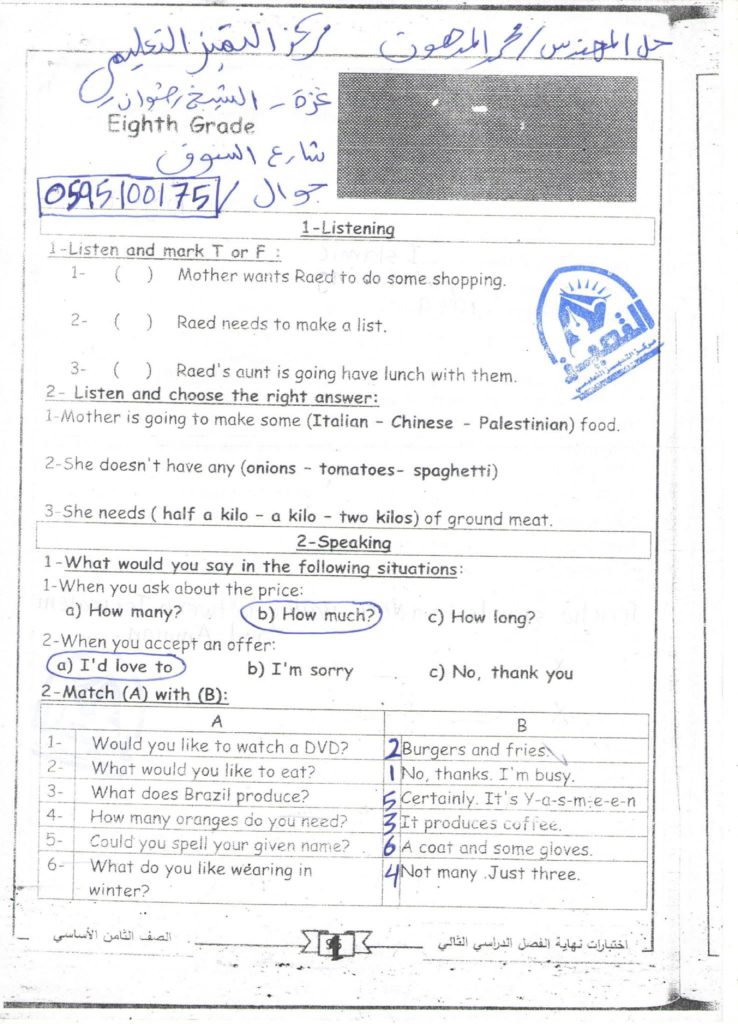 حل المهندس / محمد المدهون مركز التميز التعليمي
غزة - الشيخ رضوان
Eighth Grade
شارع السوق
جوال / 0595100175
1-Listening
1-Listen and mark T or F :
1- ( ) Mother wants Raed to do some shopping.
2- ( ) Raed needs to make a list.
3- ( ) Raed's aunt is going have lunch with them.
2- Listen and choose the right answer:
1-Mother is going to make some (Italian - Chinese - Palestinian) food.
2-She doesn't have any (onions - tomatoes- spaghetti)
3-She needs ( half a kilo - a kilo - two kilos) of ground meat.
2-Speaking
1-What would you say in the following situations:
1-When you ask about the price:
a) How many? b) How much? c) How long?
2-When you accept an offer:
a) I'd love to b) I'm sorry c) No, thank you
2-Match (A) with (B):
A B
1- Would you like to watch a DVD? 2 Burgers and fries.
2- What would you like to eat? 1 No, thanks. I'm busy.
3- What does Brazil produce? 5 Certainly. It's Y-a-s-m-e-e-n
4- How many oranges do you need? 3 It produces coffee.
5- Could you spell your given name? 6 A coat and some gloves.
6- What do you like wearing in 4 Not many .Just three.
winter?
اختبارات نهاية الفصل الدراسي الثاني 1 الصف الثامن الأساسي
التميز
مركز التميز التعليمي